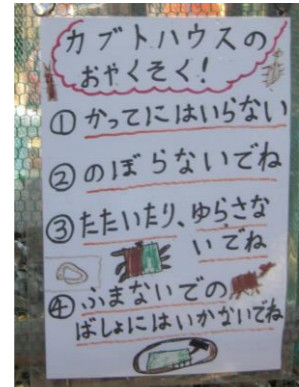 カブトハウスの
おやくそく！
①かってにはいらない
②のぼらないでね
③たたいたり、ゆらさな
いでね
④ふまないでの
ばしょにはいかないでね